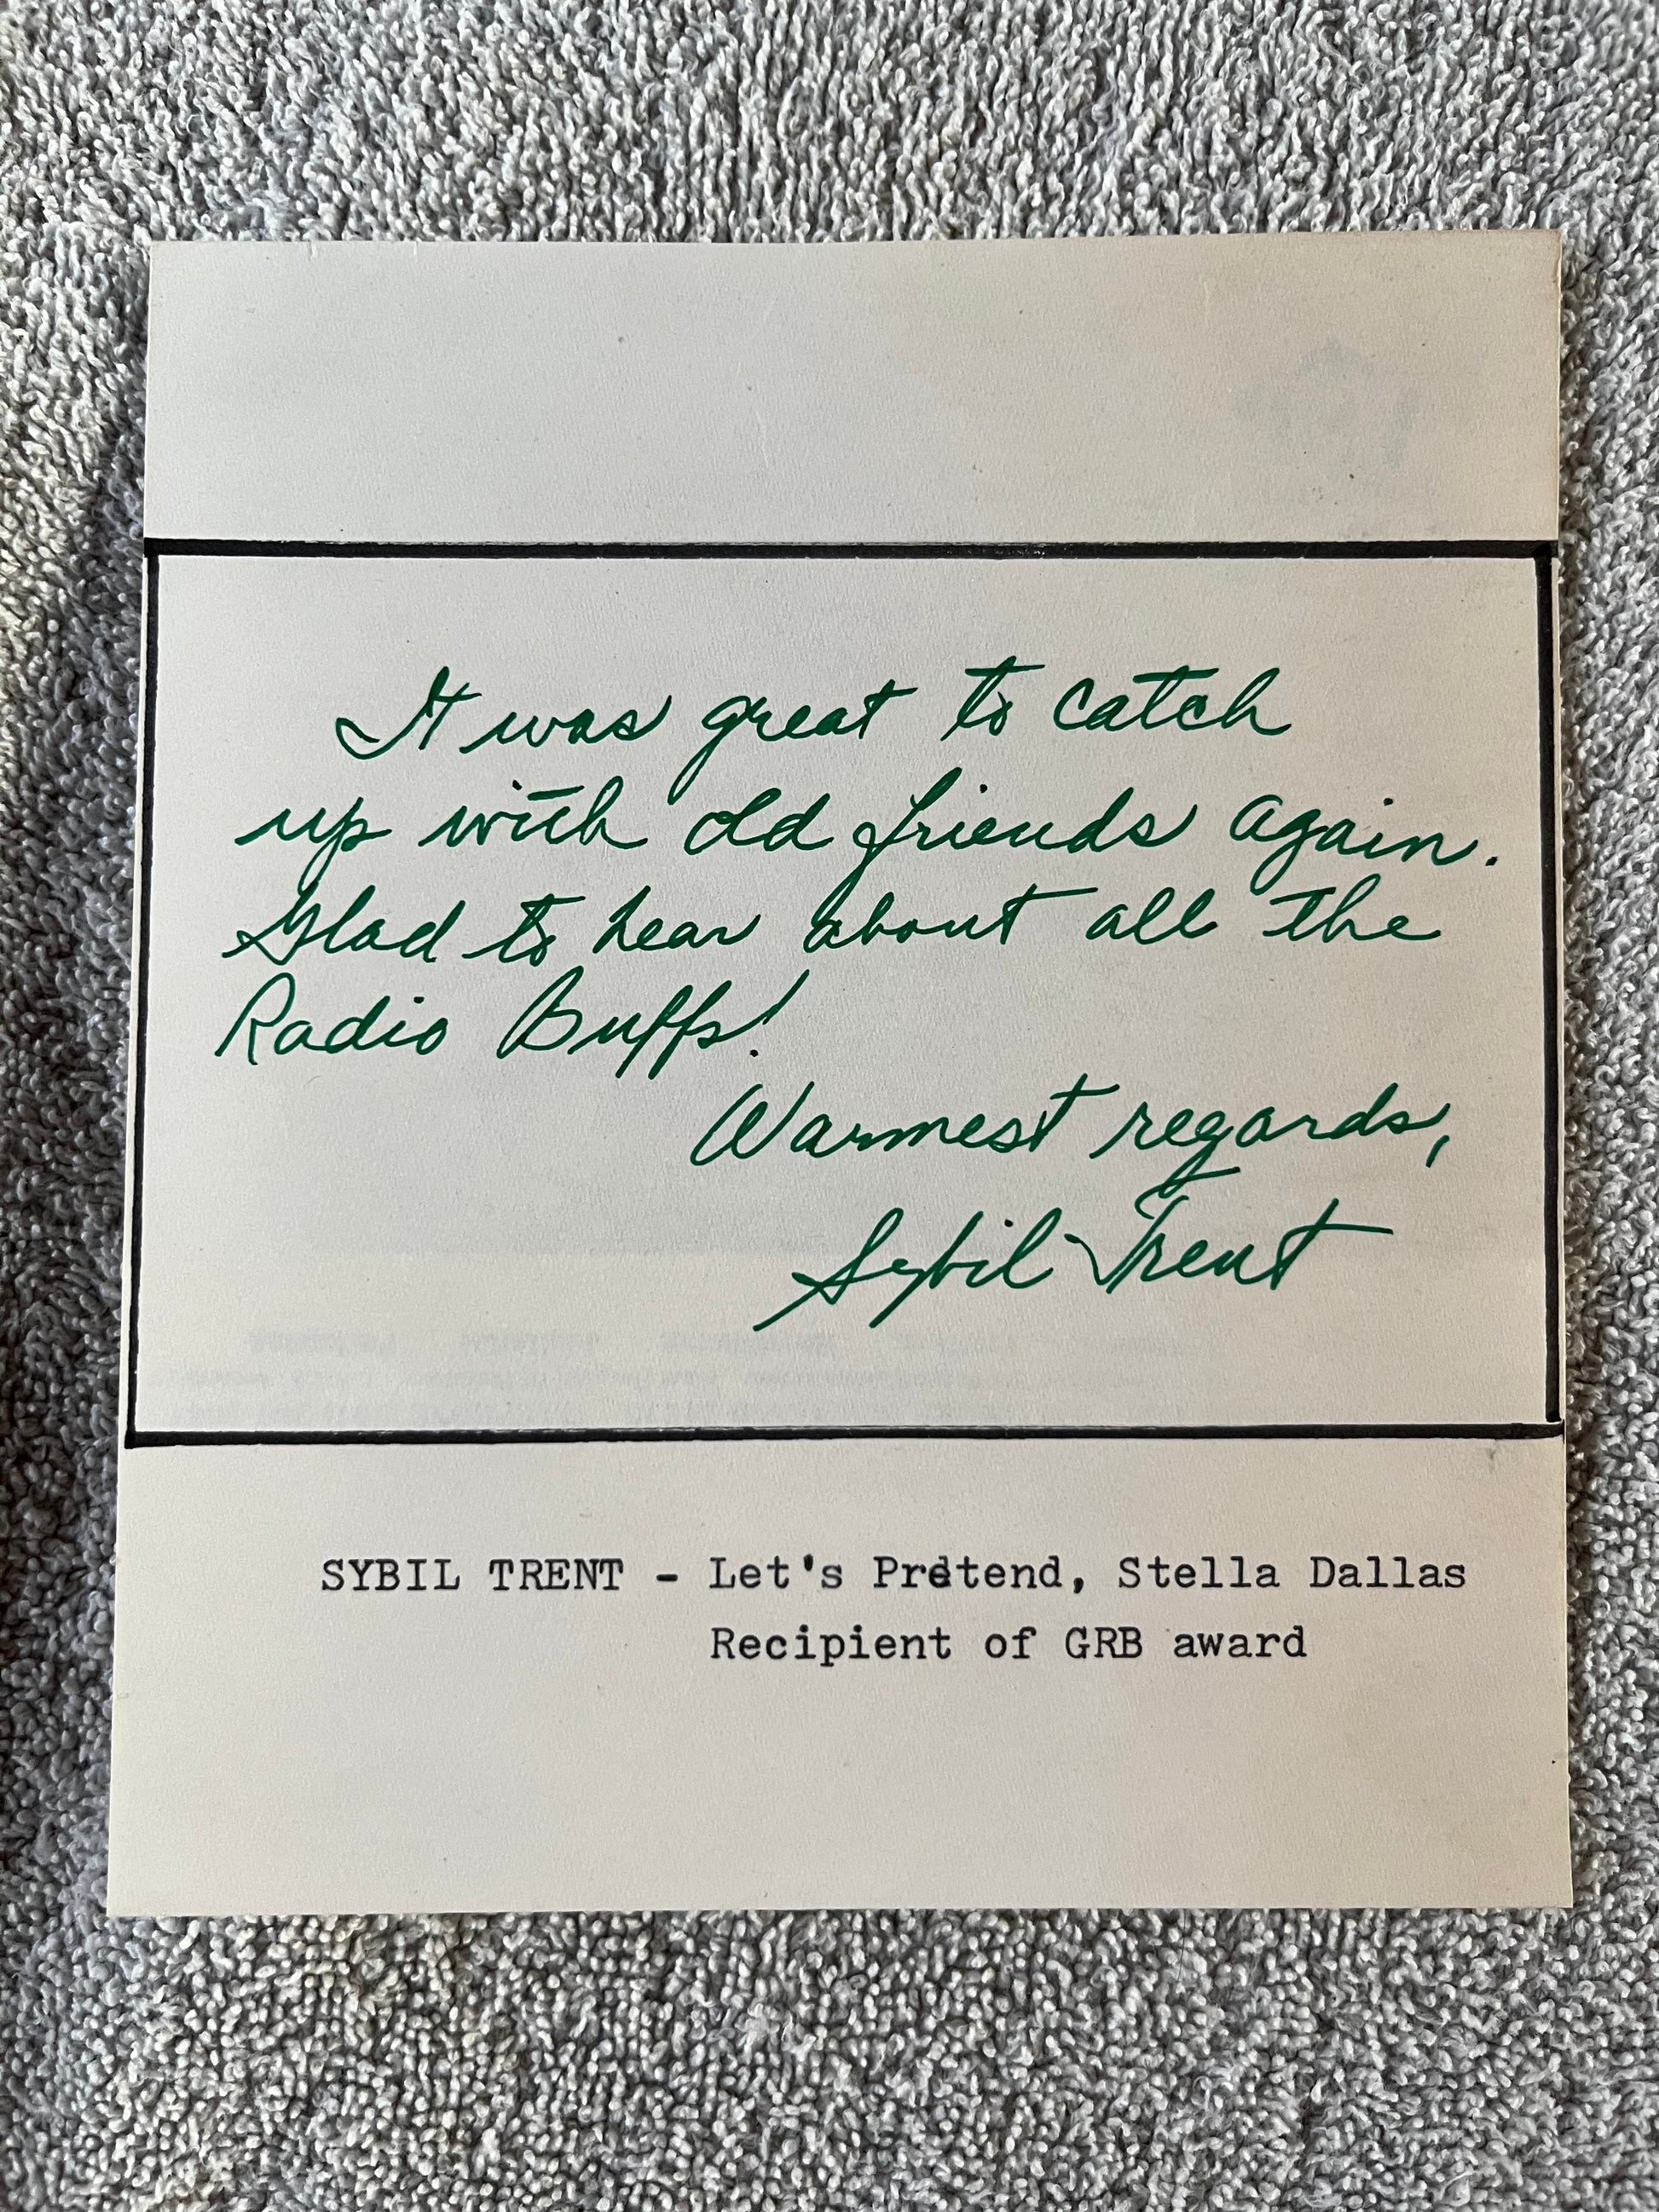 It was great to catch
up with old friends again.
Glad to hear about all the
Radio Buffs!
Warmest regards,
Sybil Trent
SYBIL TRENT - Let's Pretend, Stella Dallas
Recipient of GRB award